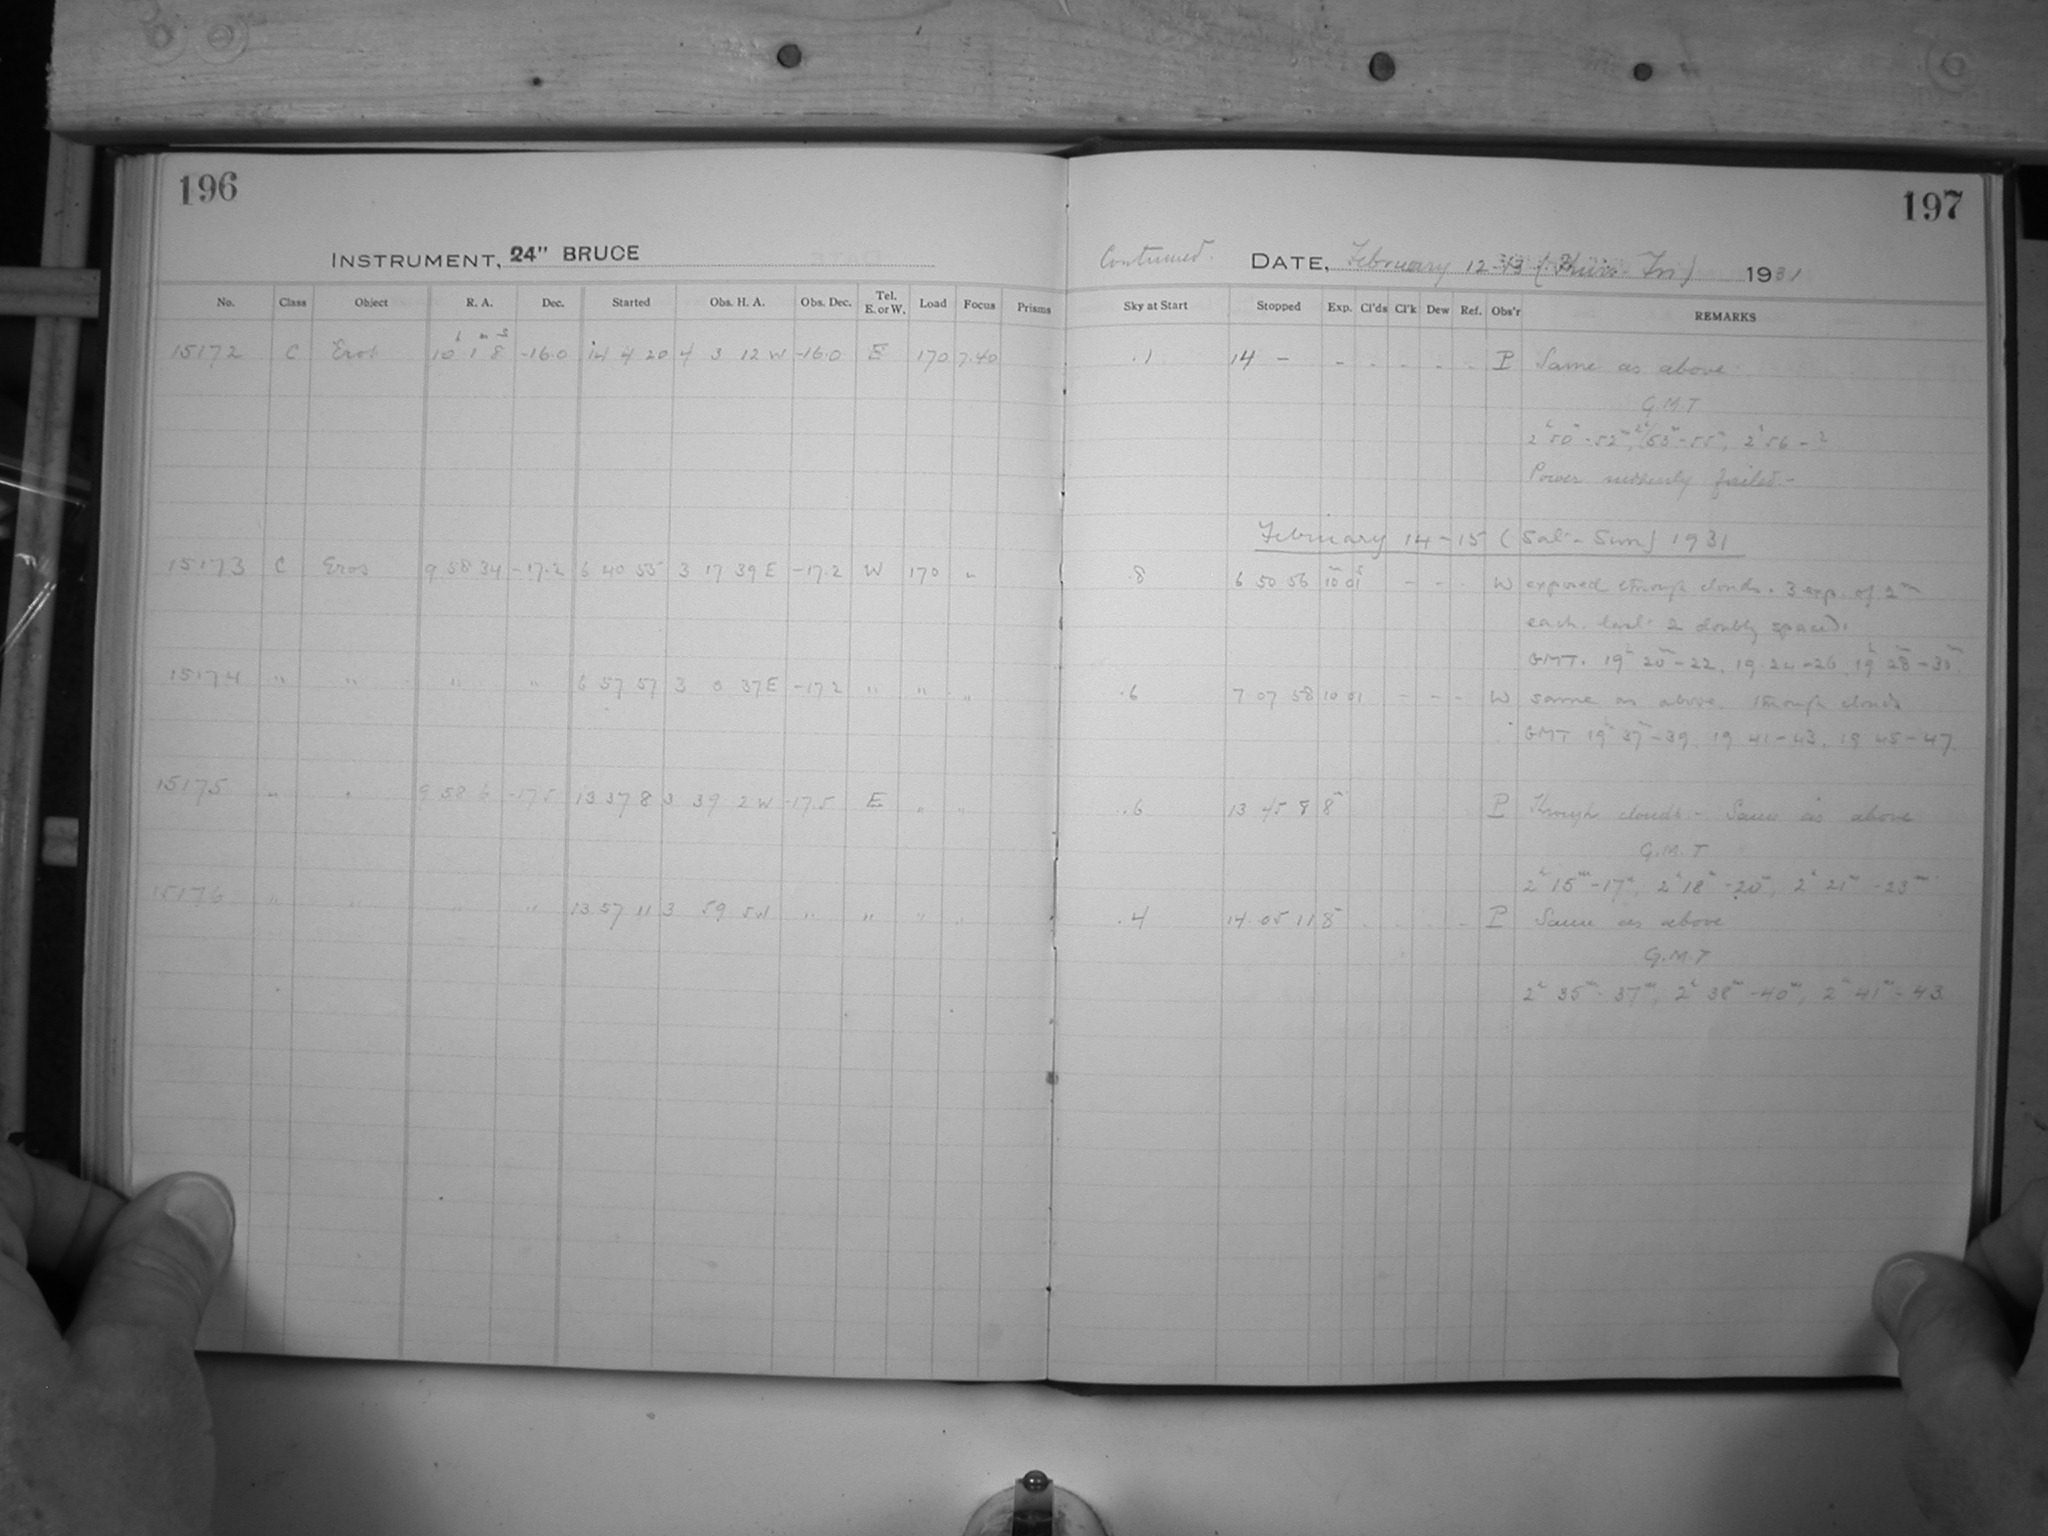 196
197
INSTRUMENT, 24" BRUCE
Continued. DATE, February 12-13 (Thurs Fri) 1931
No. Class Object R. A. Dec. Started Obs. H. A. Obs. Dec. Tel. E. or W. Load Focus Prisms Sky at Start Stopped Exp. Cl'ds Cl'k Dew Ref. Obs'r REMARKS
15172 C Eros 10h 1m 8s -16.0 14 4 20 4 3 12 W -16.0 E 170 7.40 .1 14 - - - - - - P Same as above
G.M.T
2h 50m-52m, 2h 53m-55m, 2h 56-?
Power suddenly failed.-
February 14-15 (Sat-Sun) 1931
15173 C Eros 9 58 34 -17.2 6 40 55 3 17 39 E -17.2 W 170 " .8 6 50 56 10m 01s - - - W exposed through clouds. 3 exp. of 2m
each. last 2 doubly spaced.
GMT. 19h 20m-22. 19 24-26. 19h 28m-30m
15174 " " " " 6 57 57 3 0 37 E -17.2 " " " .6 7 07 58 10 01 - - - W same as above. through clouds
GMT 19h 37m-39. 19 41-43. 19 45-47.
15175 " " 9 58 6 -17.5 13 37 8 3 39 2 W -17.5 E " " .6 13 45 8 8m P Through clouds - Same as above
G.M.T
2h 15m-17m, 2h 18m-20m, 2h 21m-23m
15176 " " " " 13 57 11 3 59 5 W " " " " .4 14 05 11 8m - - - - P Same as above
G.M.T
2h 35m-37m, 2h 38m-40m, 2h 41m-43